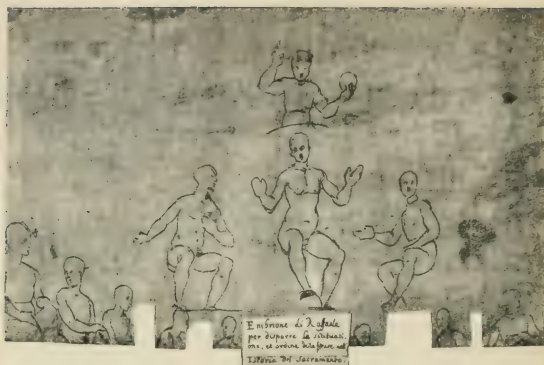 Embrione di Raffaele
per disporre la situbuazi
one, et ordine delle
Istoria del Sacramento.